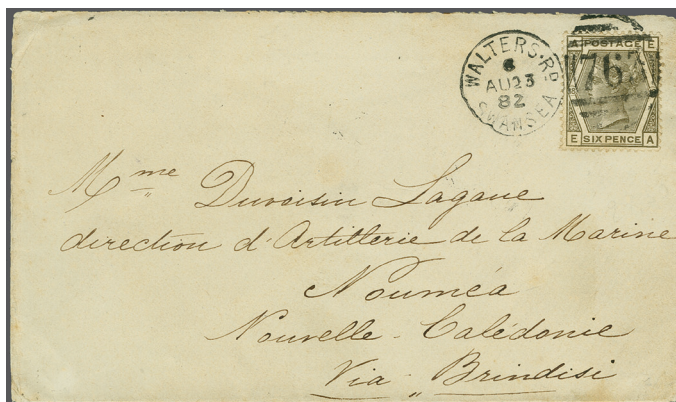 WALTERS.RD
AU23
82
SWANSEA
A POSTAGE E
763
E SIX PENCE A
Mme Duvoisin Lagane
direction d'Artillerie de la Marine
Nouméa
Nouvelle-Calédonie
Via Brindisi